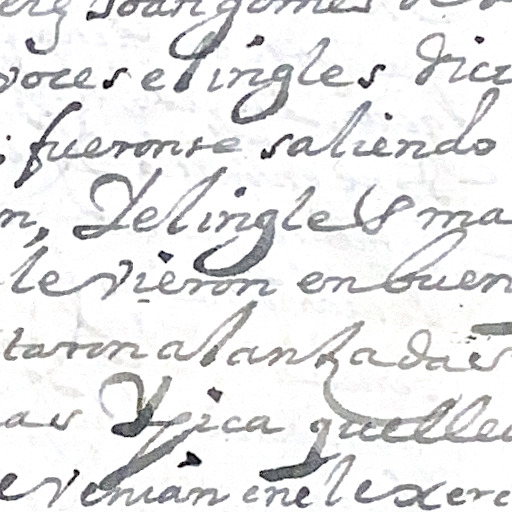 Joan gomes de
voces el ingles dici
fueronse saliendo
n, Y el ingles ma
le vieron en buen
taron a lanzadaes
as Y pica que lle
e venian en el exerc